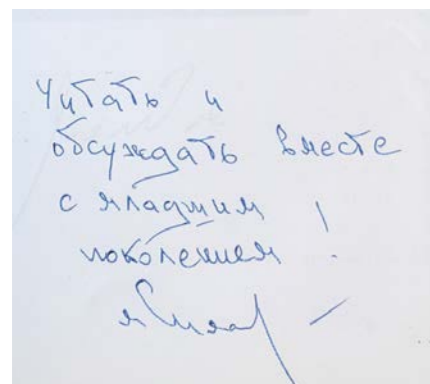 Читать и
обсуждать вместе
с младшим
поколением!